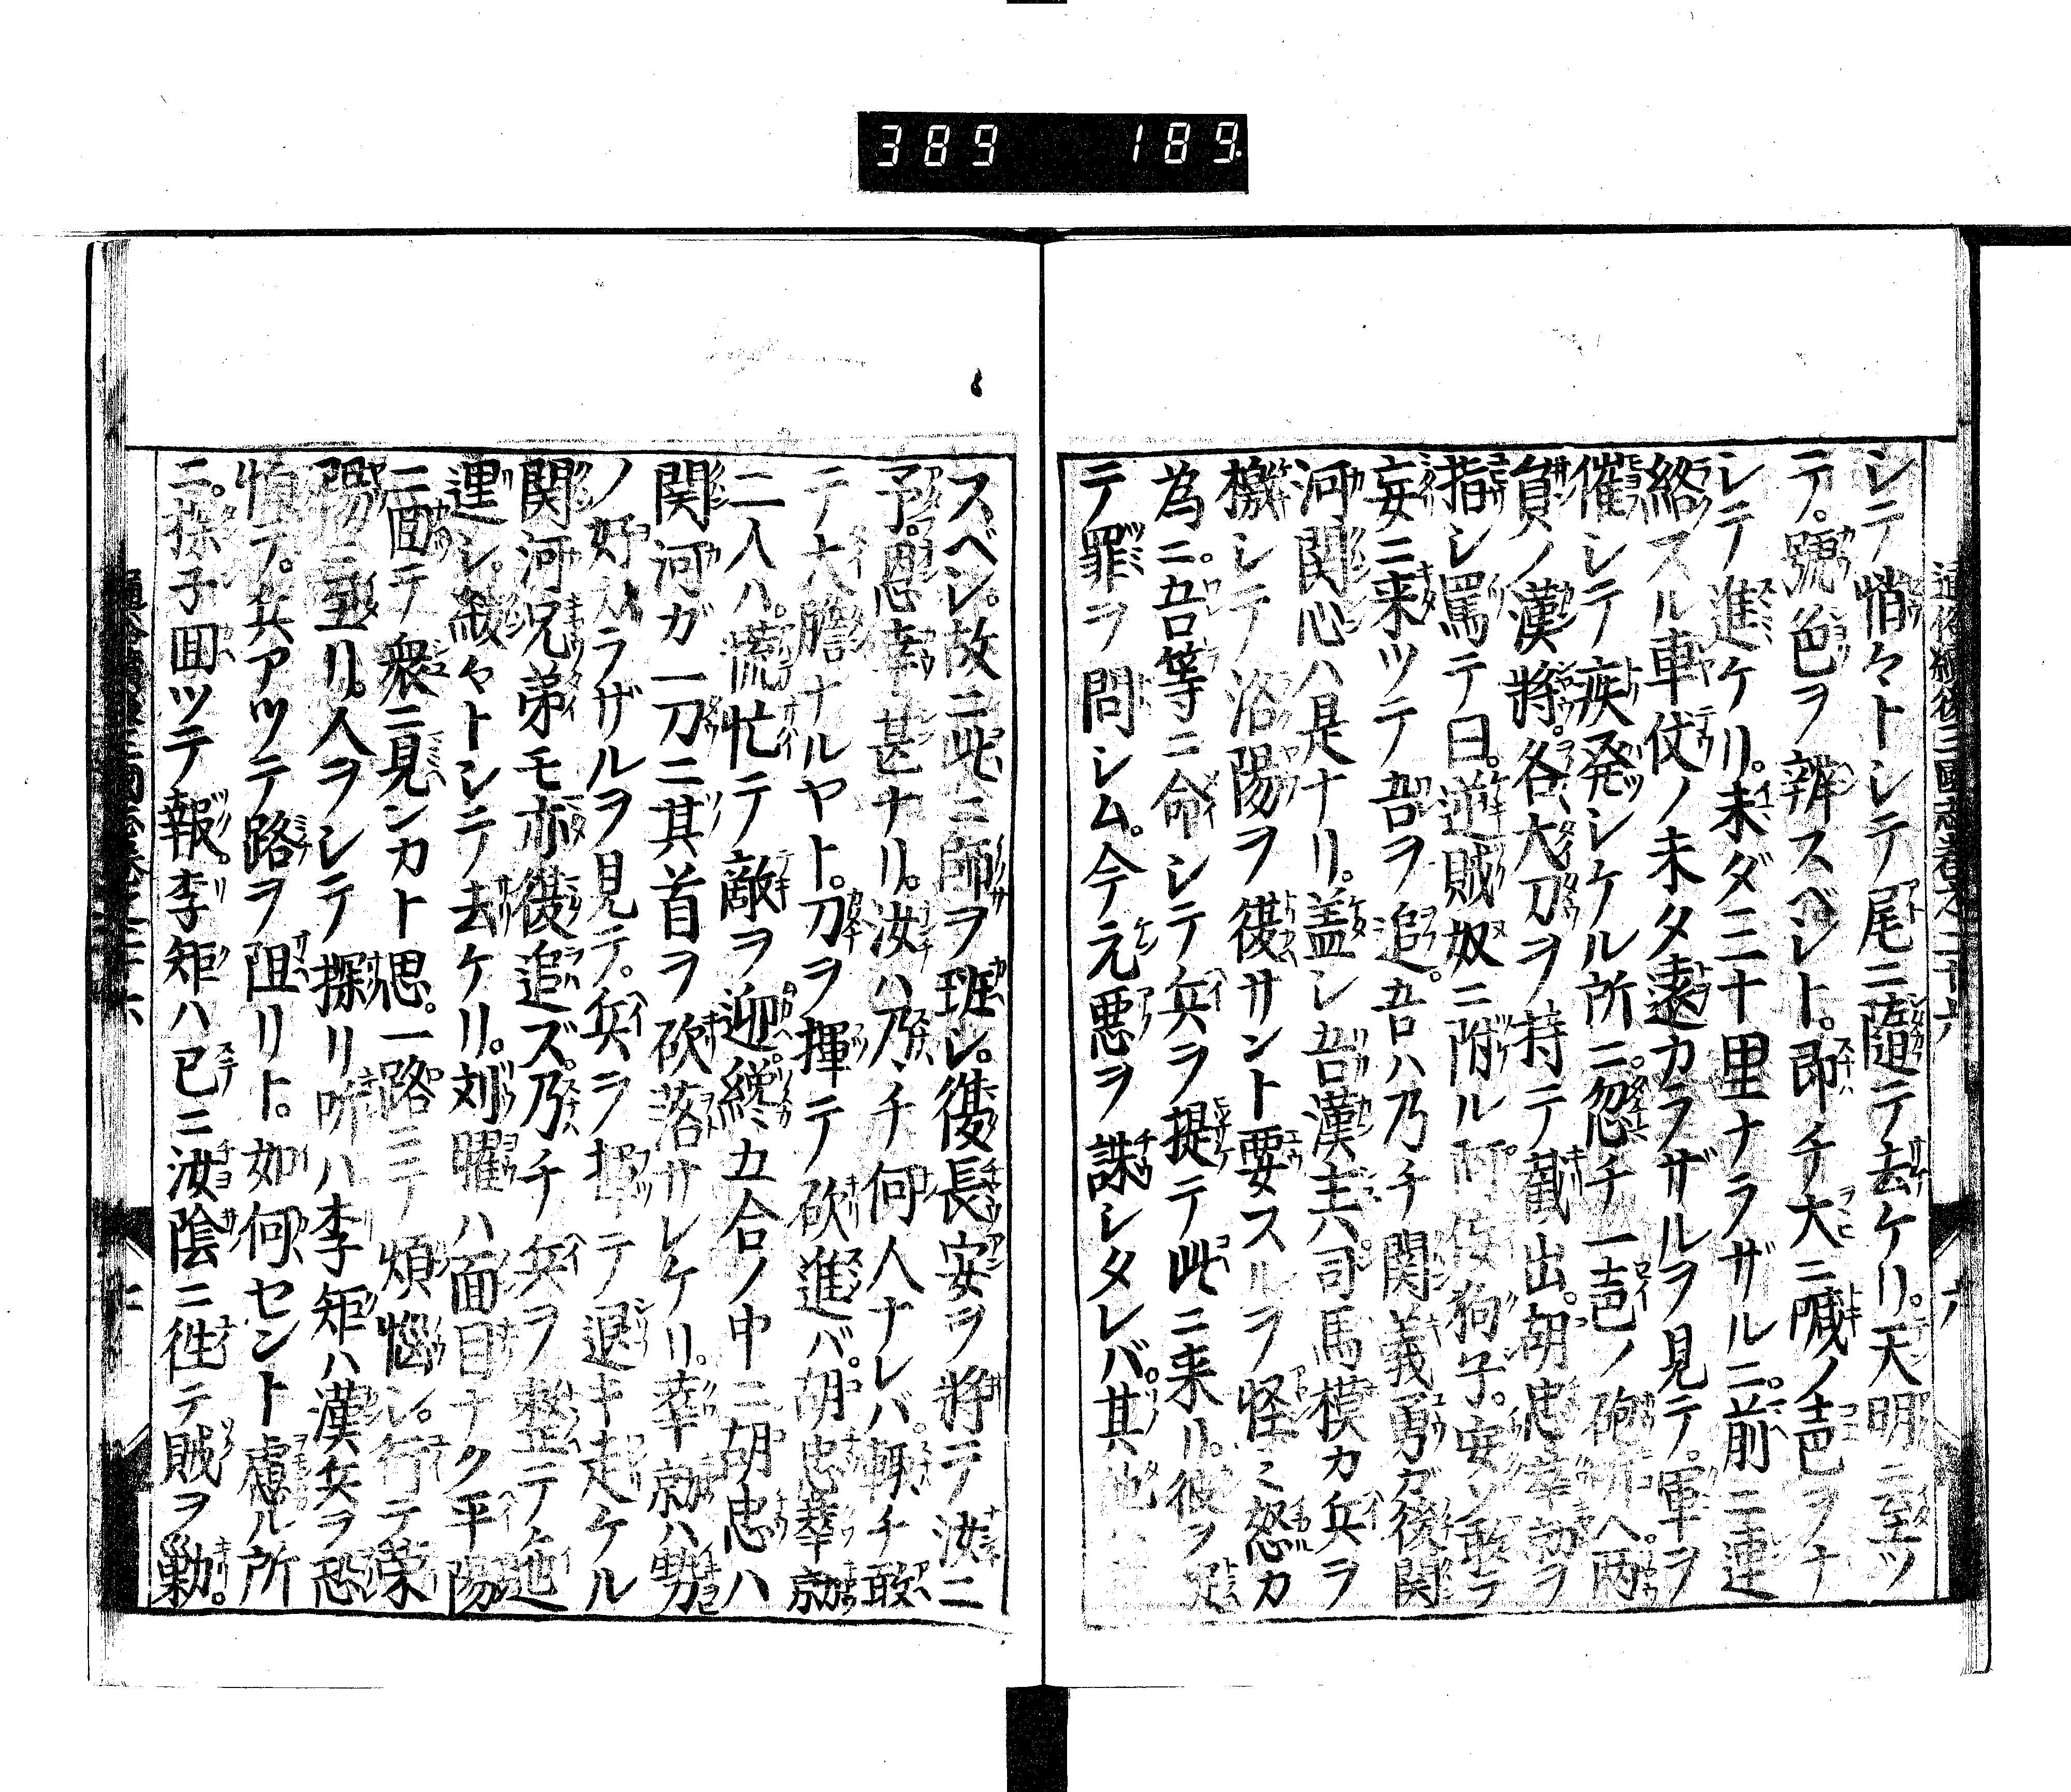 389 189.
通俗續後三國志卷之二十六
シテ悄々トシテ尾ニ隨テ去ケリ。天明ニ至ツ
テ。號色ヲ辨スベシト。即チ大ニ喊ノ声ヲナ
シテ進ケリ。未ダ三十里ナラザルニ。前ニ連
絡スル車仗ノ未タ遠カラザルヲ見テ。軍ヲ
催シテ疾発シケル所ニ。忽チ一声ノ砲
員ノ漢將。各大刀ヲ持テ截出。胡忠華勍ヲ
指シ罵テ曰。逆賊奴ニ附ル狗子。安ソ敢テ
妄ニ来ツテ吾ヲ追。吾ハ乃チ関義勇カ後関
河関心ハ是ナリ。盖シ吾漢主司馬模カ兵ヲ
檄シテ洛陽ヲ復サント要スルヲ怪ミ怒カ
為ニ。吾等ニ命シテ兵ヲ提テ此ニ来リ。彼ヲ
テ罪ヲ問シム。今元悪ヲ誅シタレバ。其他
スベシ。故ニ此ニ師ヲ班シ。復長安ヲ將テ汝ニ
予。恩幸甚ナリ。汝ハ乃チ何人ナレバ。輙チ敢
テ大膽ナルヤト。刀ヲ揮テ砍進バ。胡忠華勍
二人ハ。慌忙テ敵ヲ迎。纔五合ノ中ニ胡忠ハ
関河ガ一刀ニ其首ヲ砍落サレケリ。華勍ハ勢
ノ好カラザルヲ見テ。兵ヲ揮テ退キ走ケル
関河兄弟モ亦復追ズ。乃チ兵ヲ整テ
運シ。緩々トシテ去ケリ。刘曜ハ面目ナク平陽
ニ回テ衆ニ見ンカト思。一路ニテ煩惱シ。行テ滎
陽ニ至リ。人ヲシテ探リ听ハ李矩ハ漢兵ヲ恐
惧テ。兵アツテ路ヲ阻リト。如何セント慮ル所
ニ。探子回ツテ報。李矩ハ已ニ汝陰ニ徃テ賊ヲ勦。